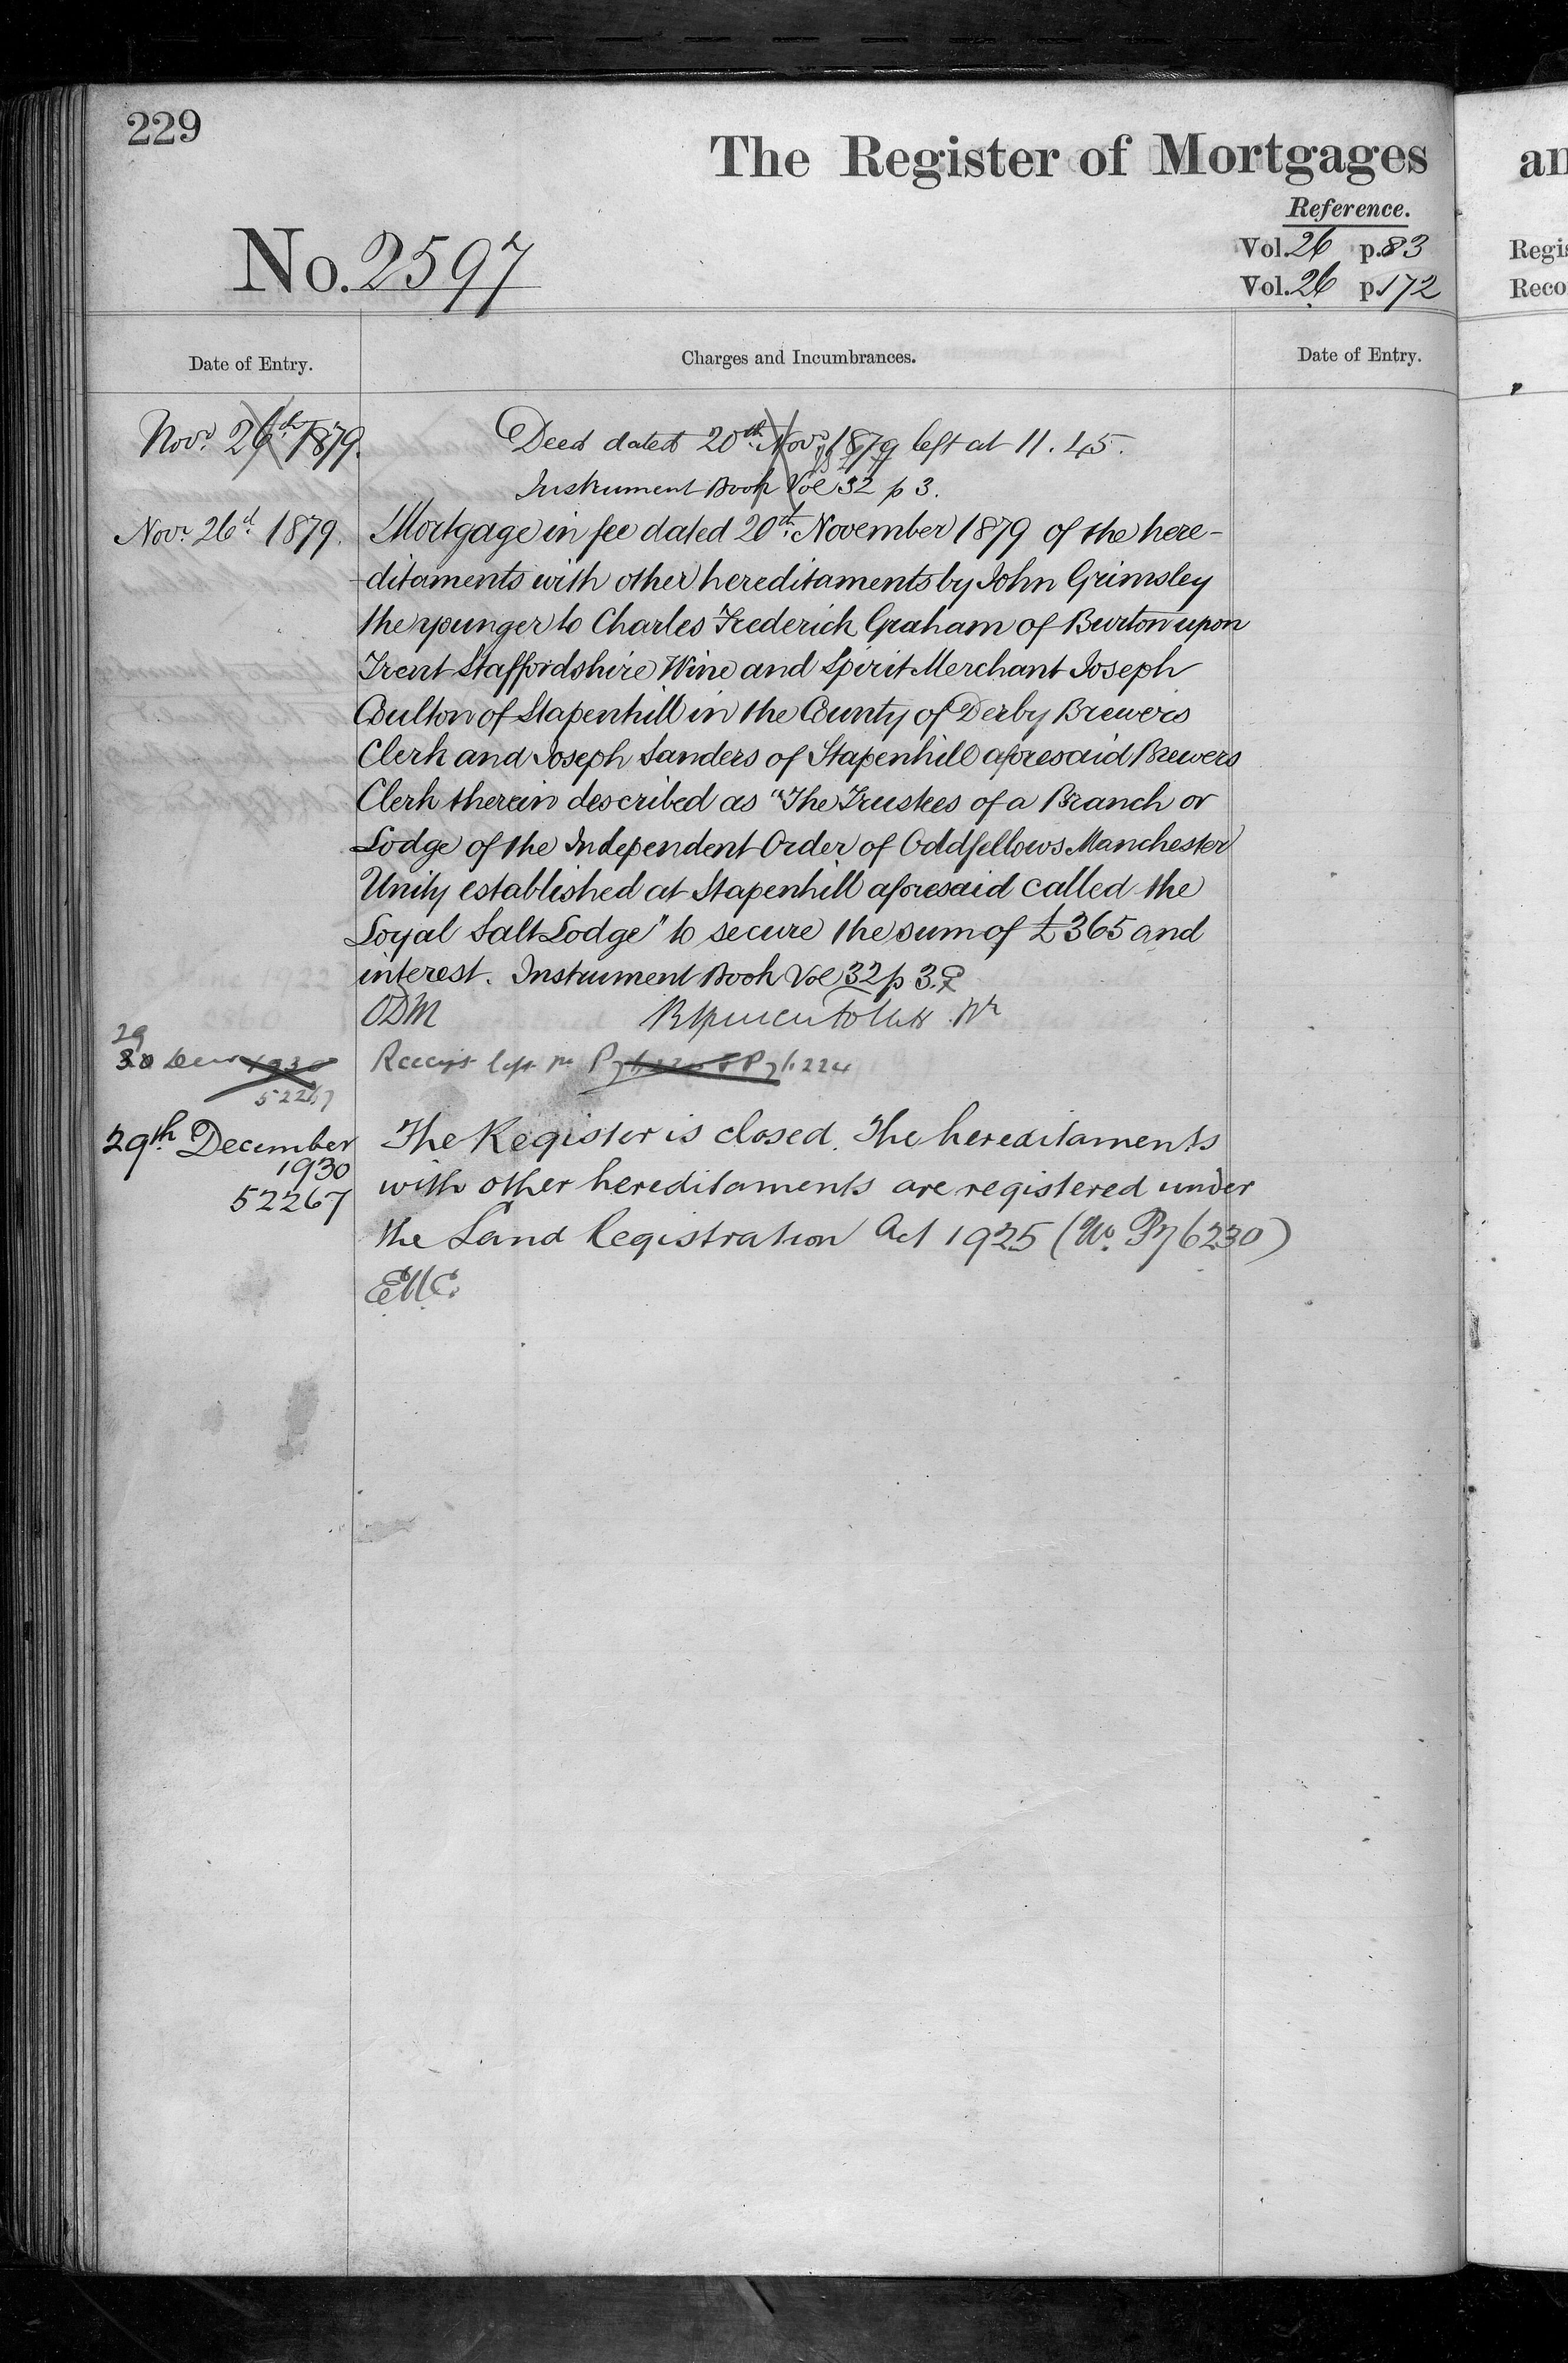 229
The Register of Mortgages
Reference.
No. 2597
Vol. 26 p. 83
Vol. 26 p. 172
Date of Entry.
Charges and Incumbrances.
Date of Entry.
Novr. 26th 1879.
Deed dated 20th Novr. 1879 left at 11.45.
Instrument Book Vol 32 p 3.
Novr. 26th 1879.
Mortgage in fee dated 20th November 1879 of the here-
-ditaments with other hereditaments by John Grimsley
the younger to Charles Frederick Graham of Burton upon
Trent Staffordshire Wine and Spirit Merchant Joseph
Coulton of Stapenhill in the County of Derby Brewers
Clerk and Joseph Sanders of Stapenhill aforesaid Brewers
Clerk therein described as "The Trustees of a Branch or
Lodge of the Independent Order of Oddfellows Manchester
Unity established at Stapenhill aforesaid called the
Loyal Salt Lodge" to secure the sum of £365 and
interest. Instrument Book Vol 32 p 3.
ODM
29
30 Decr 1930
Receipt left
52267
29th December
1930
52267
The Register is closed. The hereditaments
with other hereditaments are registered under
the Land Registration Act 1925 (No. P76230)
EMC.
an
Regis
Reco